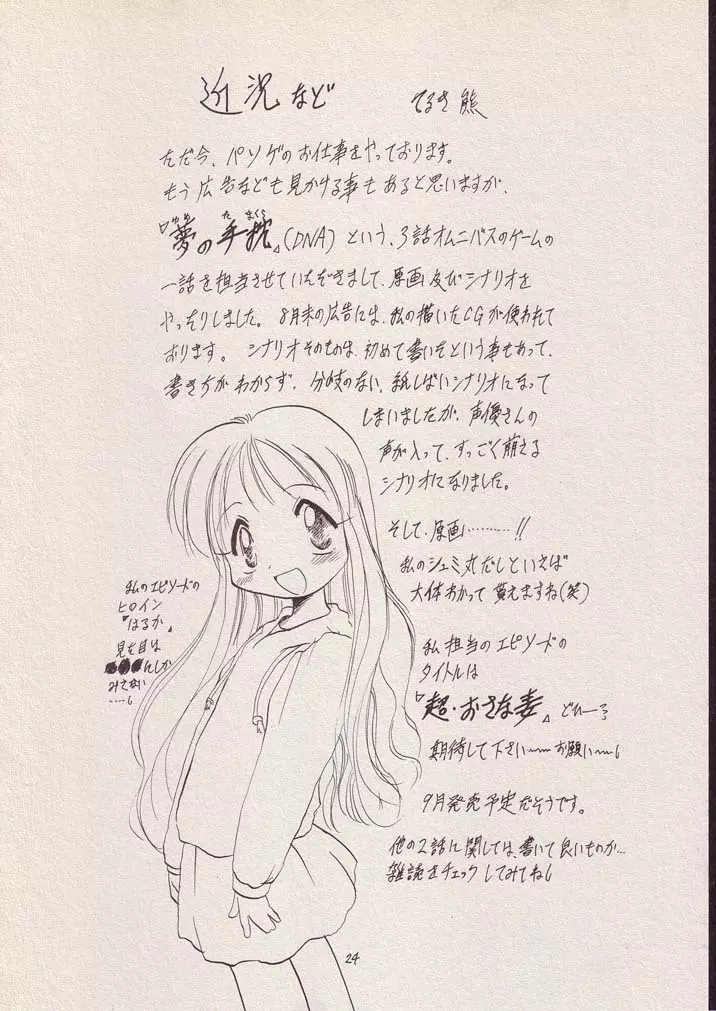 近況など
てるき熊
ただ今、パソゲのお仕事をやっております。
もう広告なども見かける事もあると思いますが、
『夢の手枕』(DNA) という、3話オムニバスのゲームの
ゆめ た まくら
一話を担当させていただきまして、原画及びシナリオを
やったりしました。8月末の広告には、私の描いたCGが使われて
おります。シナリオそのものは、初めて書いたという事もあって、
書き方がわからず、分岐のない、紙しばいシナリオになって
しまいましたが、声優さんの
声が入って、すっごく萌える
シナリオになりました。
そして、原画………!!
私のシュミ丸だしといえば
大体わかって貰えますね(笑)
私のエピソードの
ヒロイン
『はるか』
見た目は
にしか
みえない
私担当のエピソードの
タイトルは
『超・おさな妻』どひーっ
期待して下さい〜〜お願い〜
9月発売予定だそうです。
他の2話に関しては、書いて良いものか…
雑誌をチェックしてみてね
24